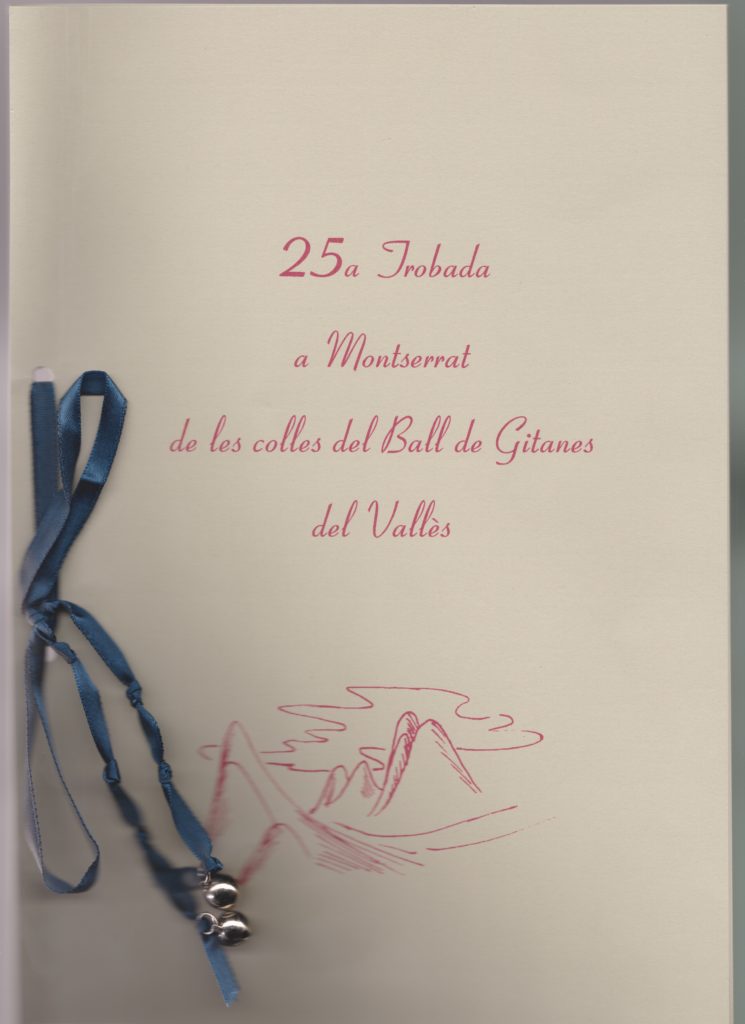 25a Trobada
a Montserrat
de les colles del Ball de Gitanes
del Vallès